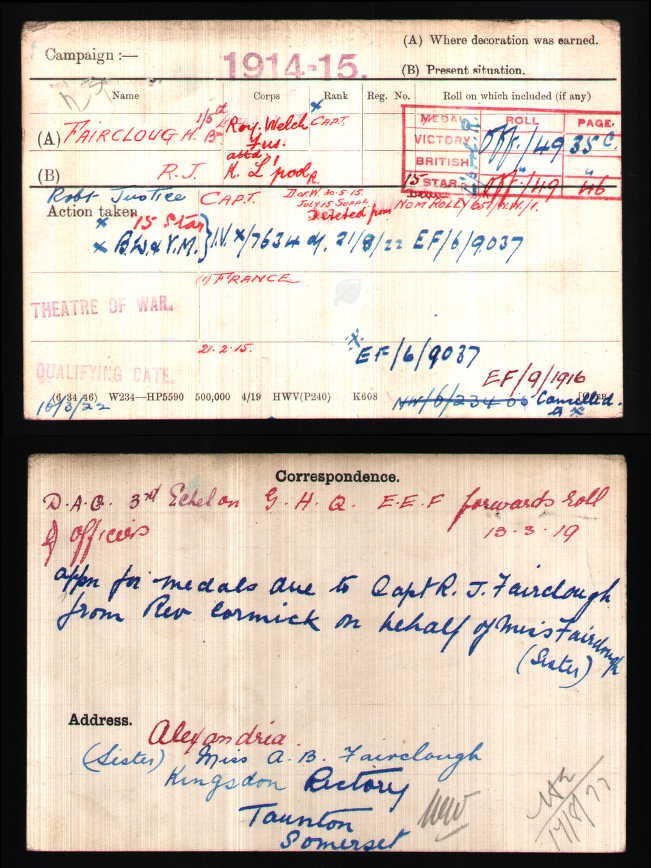 (A) Where decoration was earned.
Campaign :— 1914-15.
(B) Present situation.
Name Corps Rank Reg. No. Roll on which included (if any)
MEDAL ROLL PAGE
(A) FAIRCLOUGH. 1/5th Bn Roy. Welch Fus. CAPT.
VICTORY Off/49 35 C.
BRITISH " "
attd
(B) R.J. K L'pool R.
15 STAR Off/49 46
Robt Justice CAPT. D of W. 30.5.15.
July 15 Suppl
Action taken Deleted from NOM ROLL
× 15 Star
× B.W. & V.M. } I.V. ×/7634 21/8/22 EF/6/9037
(1) FRANCE
THEATRE OF WAR.
21.2.15.
EF/6/9037
QUALIFYING DATE.
EF/9/1916
(6 34 46) W234—HP5590 500,000 4/19 HWV(P240) K608
16/3/22 NW/6/23406 Cancelled.
Correspondence.
D.A.G. 3rd Echelon G.H.Q. E.E.F forwards roll
of officers 13.3.19
appn for medals due to Capt R. J. Fairclough
from Rev Cormick on behalf of Miss Fairclough
(Sister)
Address. Alexandria.
(Sister) Miss A. B. Fairclough
Kingsdon Rectory
Taunton
Somerset